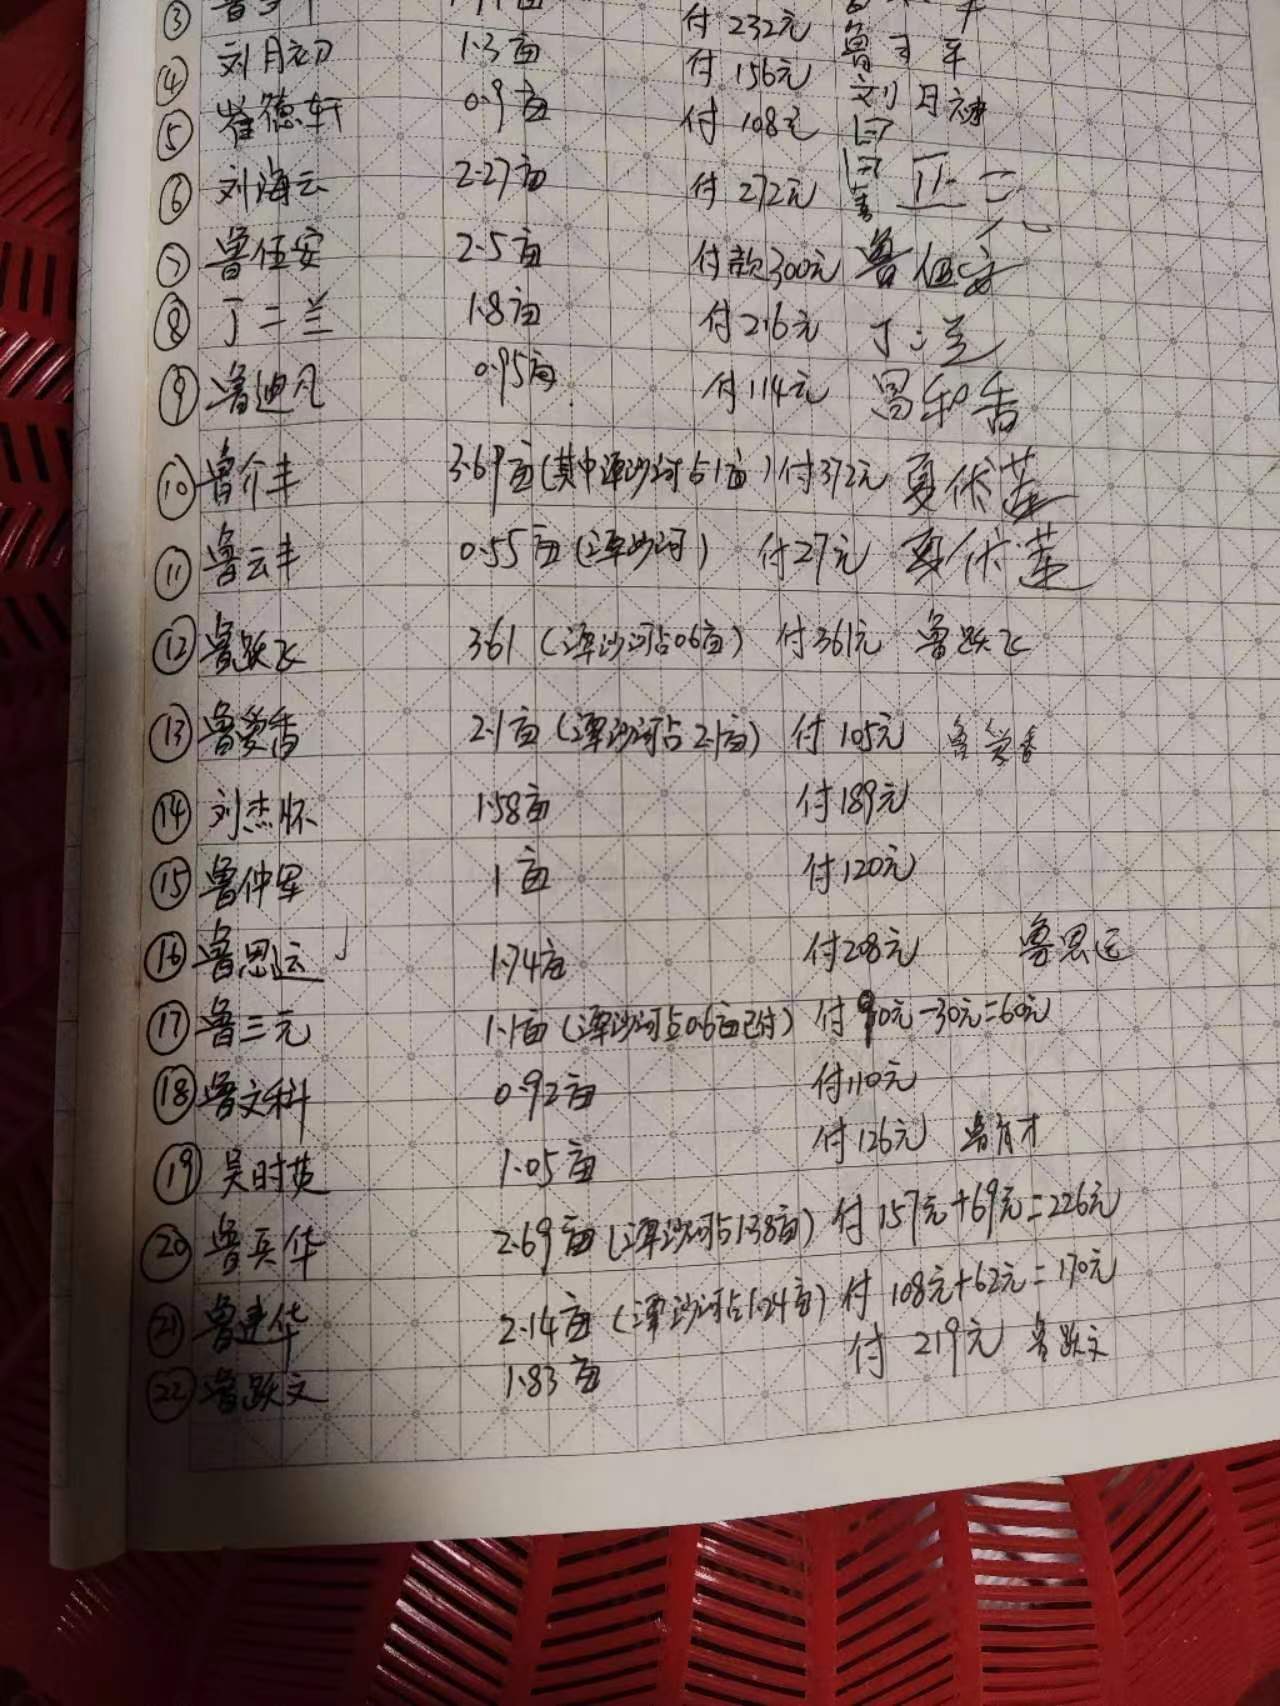 ③ 付232元 鲁
④ 刘月初 1.3亩 付156元 刘月初
⑤ 崔德轩 0.9亩 付108元
⑥ 刘海云 2.27亩 付272元
⑦ 鲁伍安 2.5亩 付款300元 鲁伍安
⑧ 丁二兰 1.8亩 付216元 丁二兰
⑨ 鲁迪凡 0.95亩 付114元
⑩ 鲁介丰 3.69亩(其中潭沙河占1亩) 付372元 夏伏莲
⑪ 鲁云丰 0.55亩(潭沙河) 付27元 夏伏莲
⑫ 鲁跃飞 361 (潭沙河占0.6亩) 付361元 鲁跃飞
⑬ 鲁爱香 2.1亩(潭沙河占2.1亩) 付105元 鲁爱香
⑭ 刘杰怀 1.58亩 付189元
⑮ 鲁仲军 1亩 付120元
⑯ 鲁思运 1.74亩 付208元 鲁思运
⑰ 鲁三元 1.1亩(潭沙河占0.6亩已付) 付90元-30元=60元
⑱ 鲁文科 0.92亩 付110元
⑲ 吴时英 1.05亩 付126元 鲁有才
⑳ 鲁兵华 2.69亩(潭沙河占1.38亩) 付157元+69元=226元
㉑ 鲁建华 2.14亩(潭沙河占1.24亩) 付108元+62元=170元
㉒ 鲁跃文 1.83亩 付219元 鲁跃文